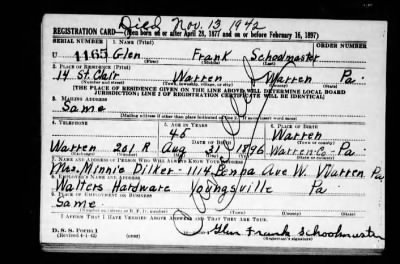 Died Nov. 13 1942
REGISTRATION CARD—(Men born on or after April 28, 1877 and on or before February 16, 1897)
SERIAL NUMBER 1. NAME (Print) ORDER NUMBER
U 1165 Glen Frank Schoolmaster
(First) (Middle) (Last)
2. PLACE OF RESIDENCE (Print)
14 St. Clair Warren Warren Pa.
(Number and street) (Town, township, village, or city) (County) (State)
[THE PLACE OF RESIDENCE GIVEN ON THE LINE ABOVE WILL DETERMINE LOCAL BOARD
JURISDICTION; LINE 2 OF REGISTRATION CERTIFICATE WILL BE IDENTICAL]
3. MAILING ADDRESS
Same
[Mailing address if other than place indicated on line 2. If same insert word same]
4. TELEPHONE 5. AGE IN YEARS 6. PLACE OF BIRTH
46 Warren
DATE OF BIRTH
Warren 201 R Aug 31 1896 Warren-Co- Pa.
7. NAME AND ADDRESS OF PERSON WHO WILL ALWAYS KNOW YOUR ADDRESS
Mrs. Minnie Dilker-1114 Penna Ave W. Warren Pa
8. EMPLOYER'S NAME AND ADDRESS
Walters Hardware Youngsville Pa
9. PLACE OF EMPLOYMENT OR BUSINESS
Same
I AFFIRM THAT I HAVE VERIFIED ABOVE ANSWERS AND THAT THEY ARE TRUE.
D. S. S. Form 1
(Revised 4-1-42)
Glen Frank Schoolmaster
(Registrant's signature)